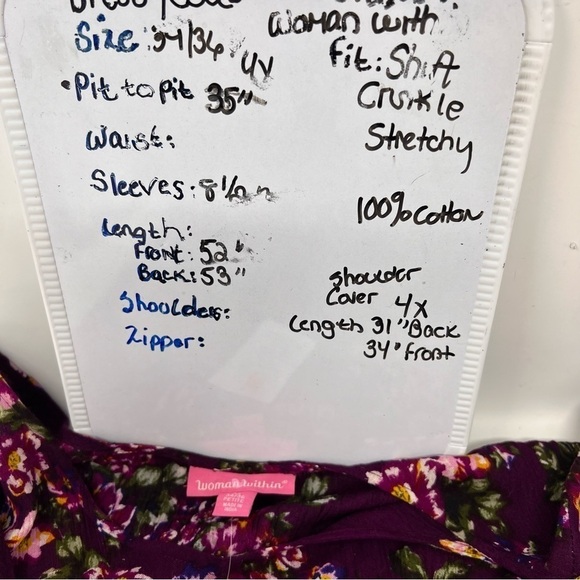 Size: 34/36
4X
• Pit to pit 35"
Waist:
Sleeves: 8 1/2
Length:
Front: 52"
Back: 53"
Shoolders:
Zipper:
Woman With
Fit: Shift
Crinkle
Stretchy
100% Cotton
Shoulder
Cover 4X
Length 31" Back
34" Front
woman within®